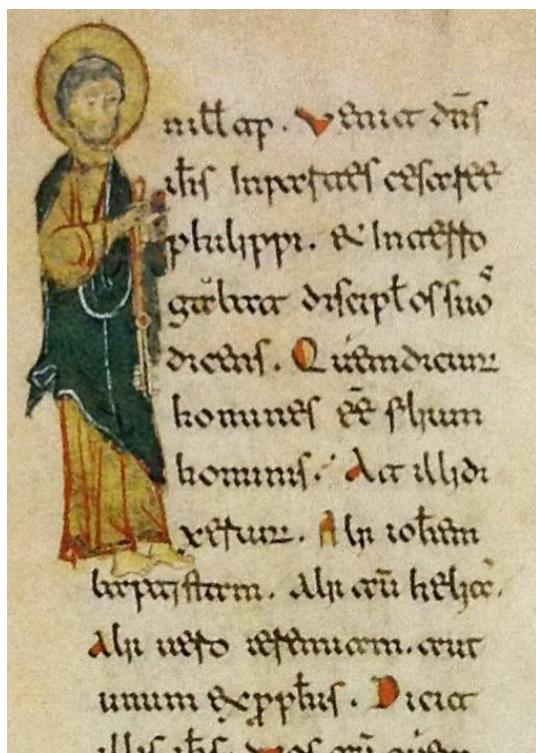 nill̅ tp. Venit dn̅s
ih̅s Inpartes cesaree
philippi. et Interro
gab̅at discipl̅os suos
dicens. Quem dicunt
homines ee̅ filium
hominis. At illi di
xerunt. Alii ioh̅em
baptistam. alii au̅ helia̅.
Alii uero ieremiam. aut
unum ex pph̅is. Dicit
illis ih̅s. Vos au̅ quem